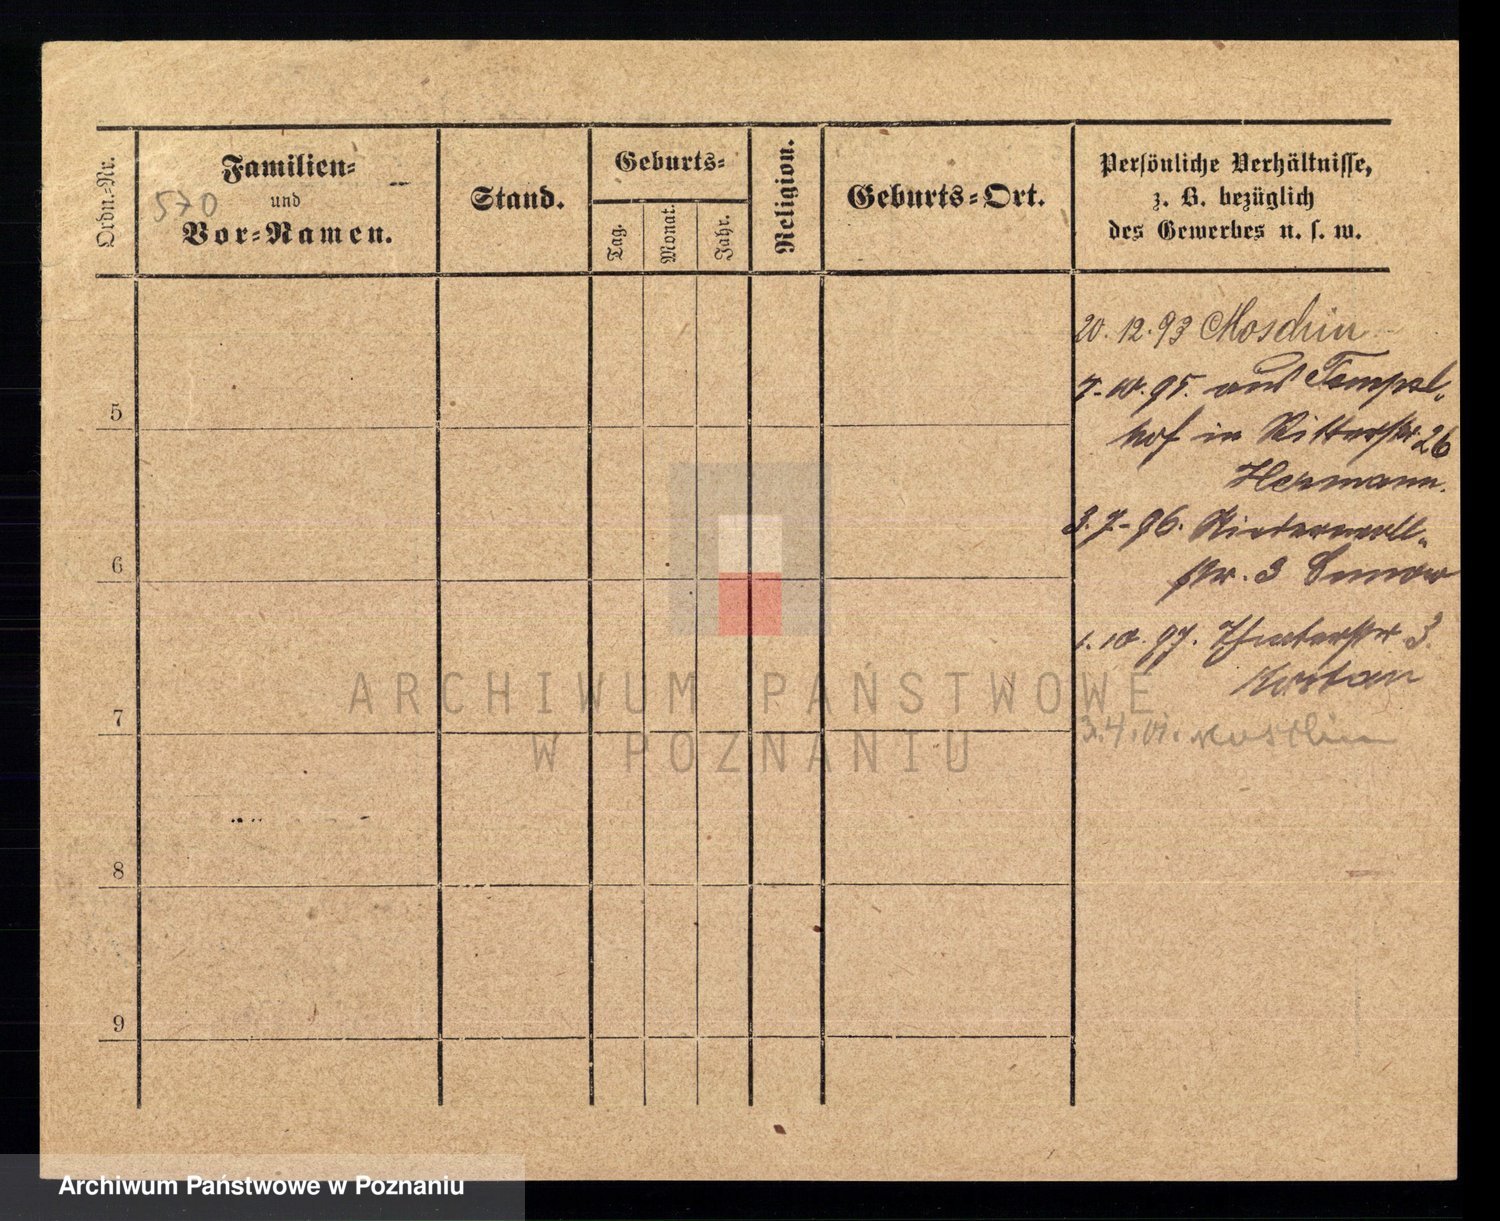 Ordn.-Nr.
Familien-
und
Vor-Namen.
570
Stand.
Geburts-
Tag.
Monat.
Jahr.
Religion.
Geburts-Ort.
Persönliche Verhältnisse,
z. B. bezüglich
des Gewerbes u. s. w.
20. 12. 93 Moschin
7. 10. 95. aus Tempel-
hof in Ritterstr 26
Hermann.
5
3. 7. 96.
str. 3
6
1. 10. 97. Theaterstr 3.
7
3. 4. 01.
8
9
ARCHIWUM PAŃSTWOWE
W POZNANIU
Archiwum Państwowe w Poznaniu